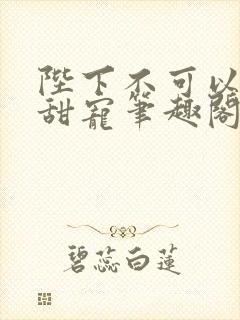 陛下不可以
甜寵筆趣閣
碧蕊白蓮